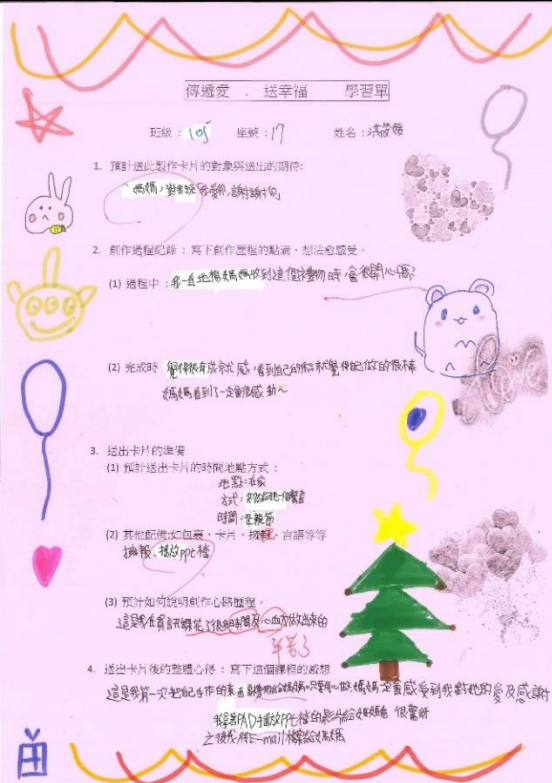 傳遞愛 . 送幸福 學習單
班級:105 座號:17 姓名:
1. 預計送此製作卡片的對象與送出的期待:
媽媽,對我說我愛你,謝謝你
2. 創作過程紀錄:寫下創作歷程的點滴、想法愈感受。
(1) 過程中:我一直地想媽媽收到這個禮物時,會很開心嗎?
(2) 完成時 覺得很有成就感,看到自己的 就覺得自己做的很不
媽媽看到了一定會很感動~
3. 送出卡片的準備
(1) 預計送出卡片的時間地點方式:
地點:在家
方式:
時間:母親節
(2) 其他配備:如包裹、卡片、 言語等等
播放ppt檔
(3) 預計如何說明創作心路歷程。
這是我在資訊課花了很多時間及心血去做出來的
辛苦了
4. 送出卡片後的整體心得:寫下這個課程的感想
這是我第一次把自己手作的東西 媽媽一定會感受到我對她的愛及感謝
我拿著PAD播放PPT檔的影片給媽媽看 很驚訝
之後我用E-mail 給媽媽